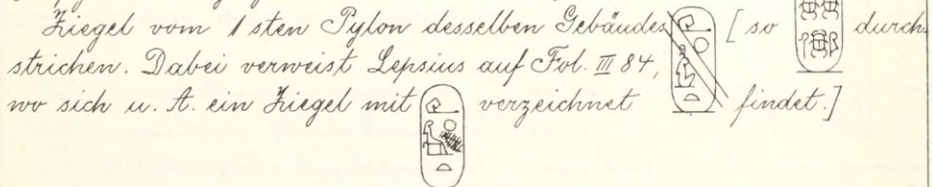 Ziegel vom 1sten Pylon desselben Gebäudes [so durch
strichen. Dabei verweist Lepsius auf Fol. III 84,
wo sich u. A. ein Ziegel mit verzeichnet findet.]